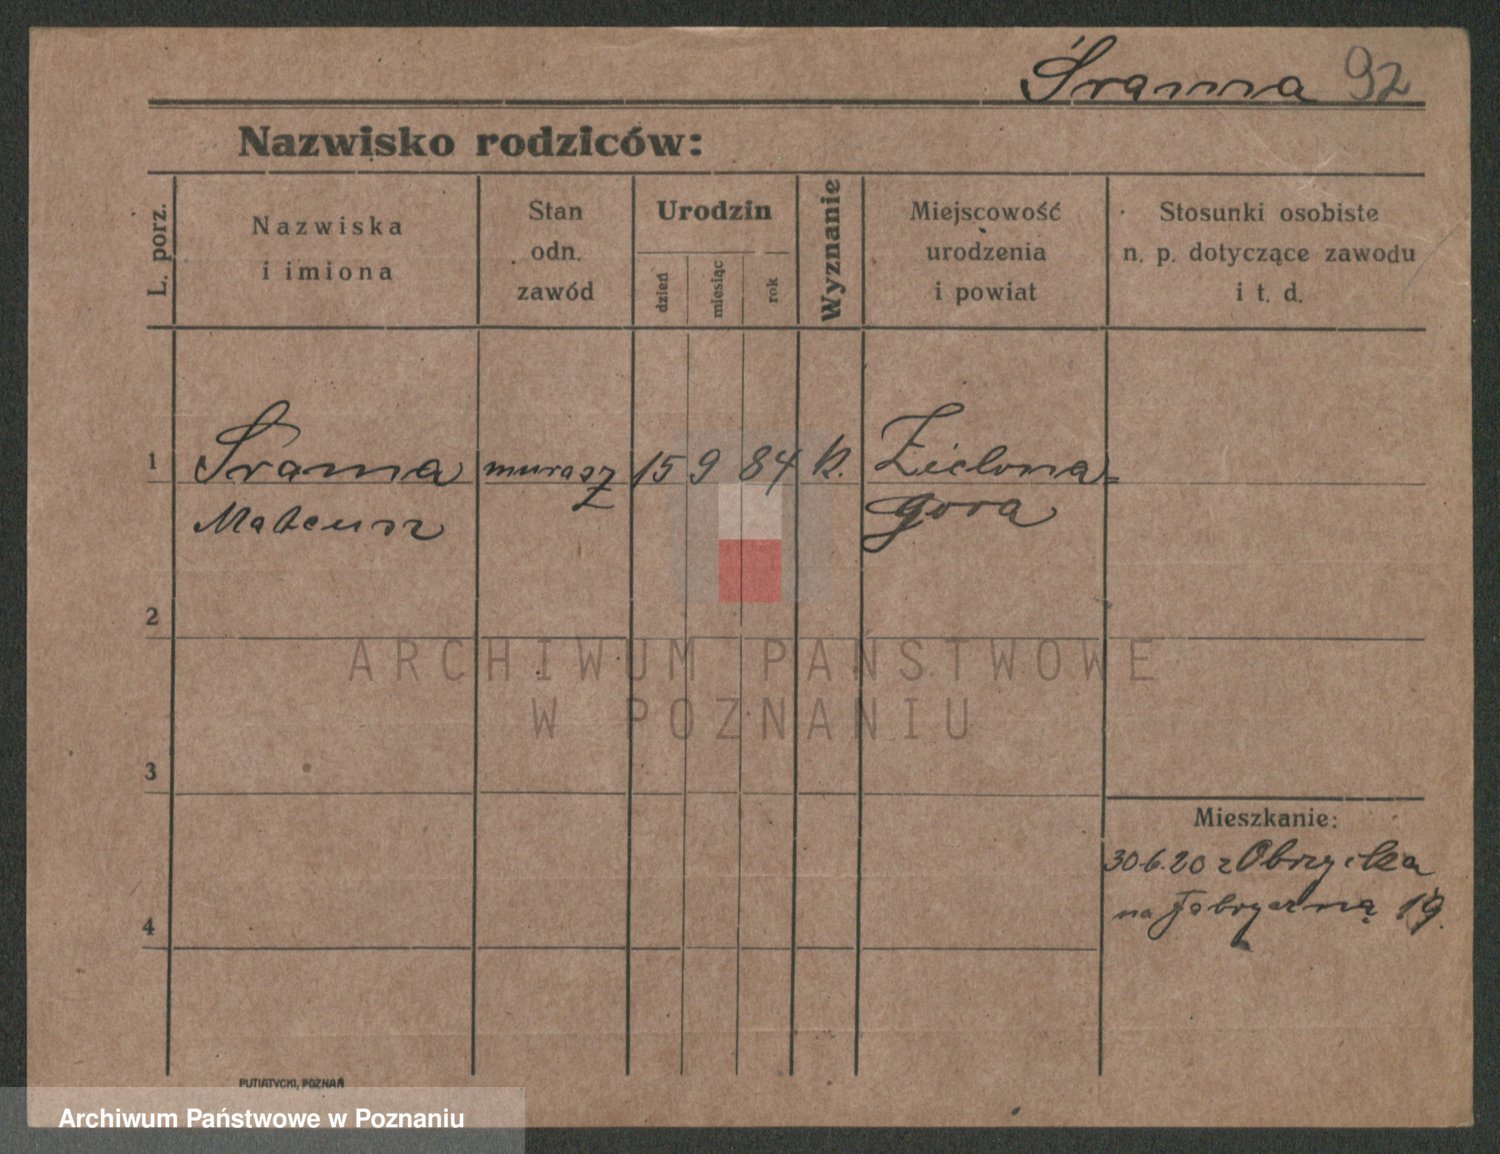 Śrama 92
Nazwisko rodziców:
L. porz.
Nazwiska
i imiona
Stan
odn.
zawód
Urodzin
dzień
miesiąc
rok
Wyznanie
Miejscowość
urodzenia
i powiat
Stosunki osobiste
n. p. dotyczące zawodu
i t. d.
1
Śrama murarz 15 9 84 k. Zielona-
Mateusz gora
2
ARCHIWUM PAŃSTWOWE
W POZNANIU
3
Mieszkanie:
30.6.20 z Obrzycka
na Fabryczną 19.
4
PUTIATYCKI, POZNAŃ
Archiwum Państwowe w Poznaniu